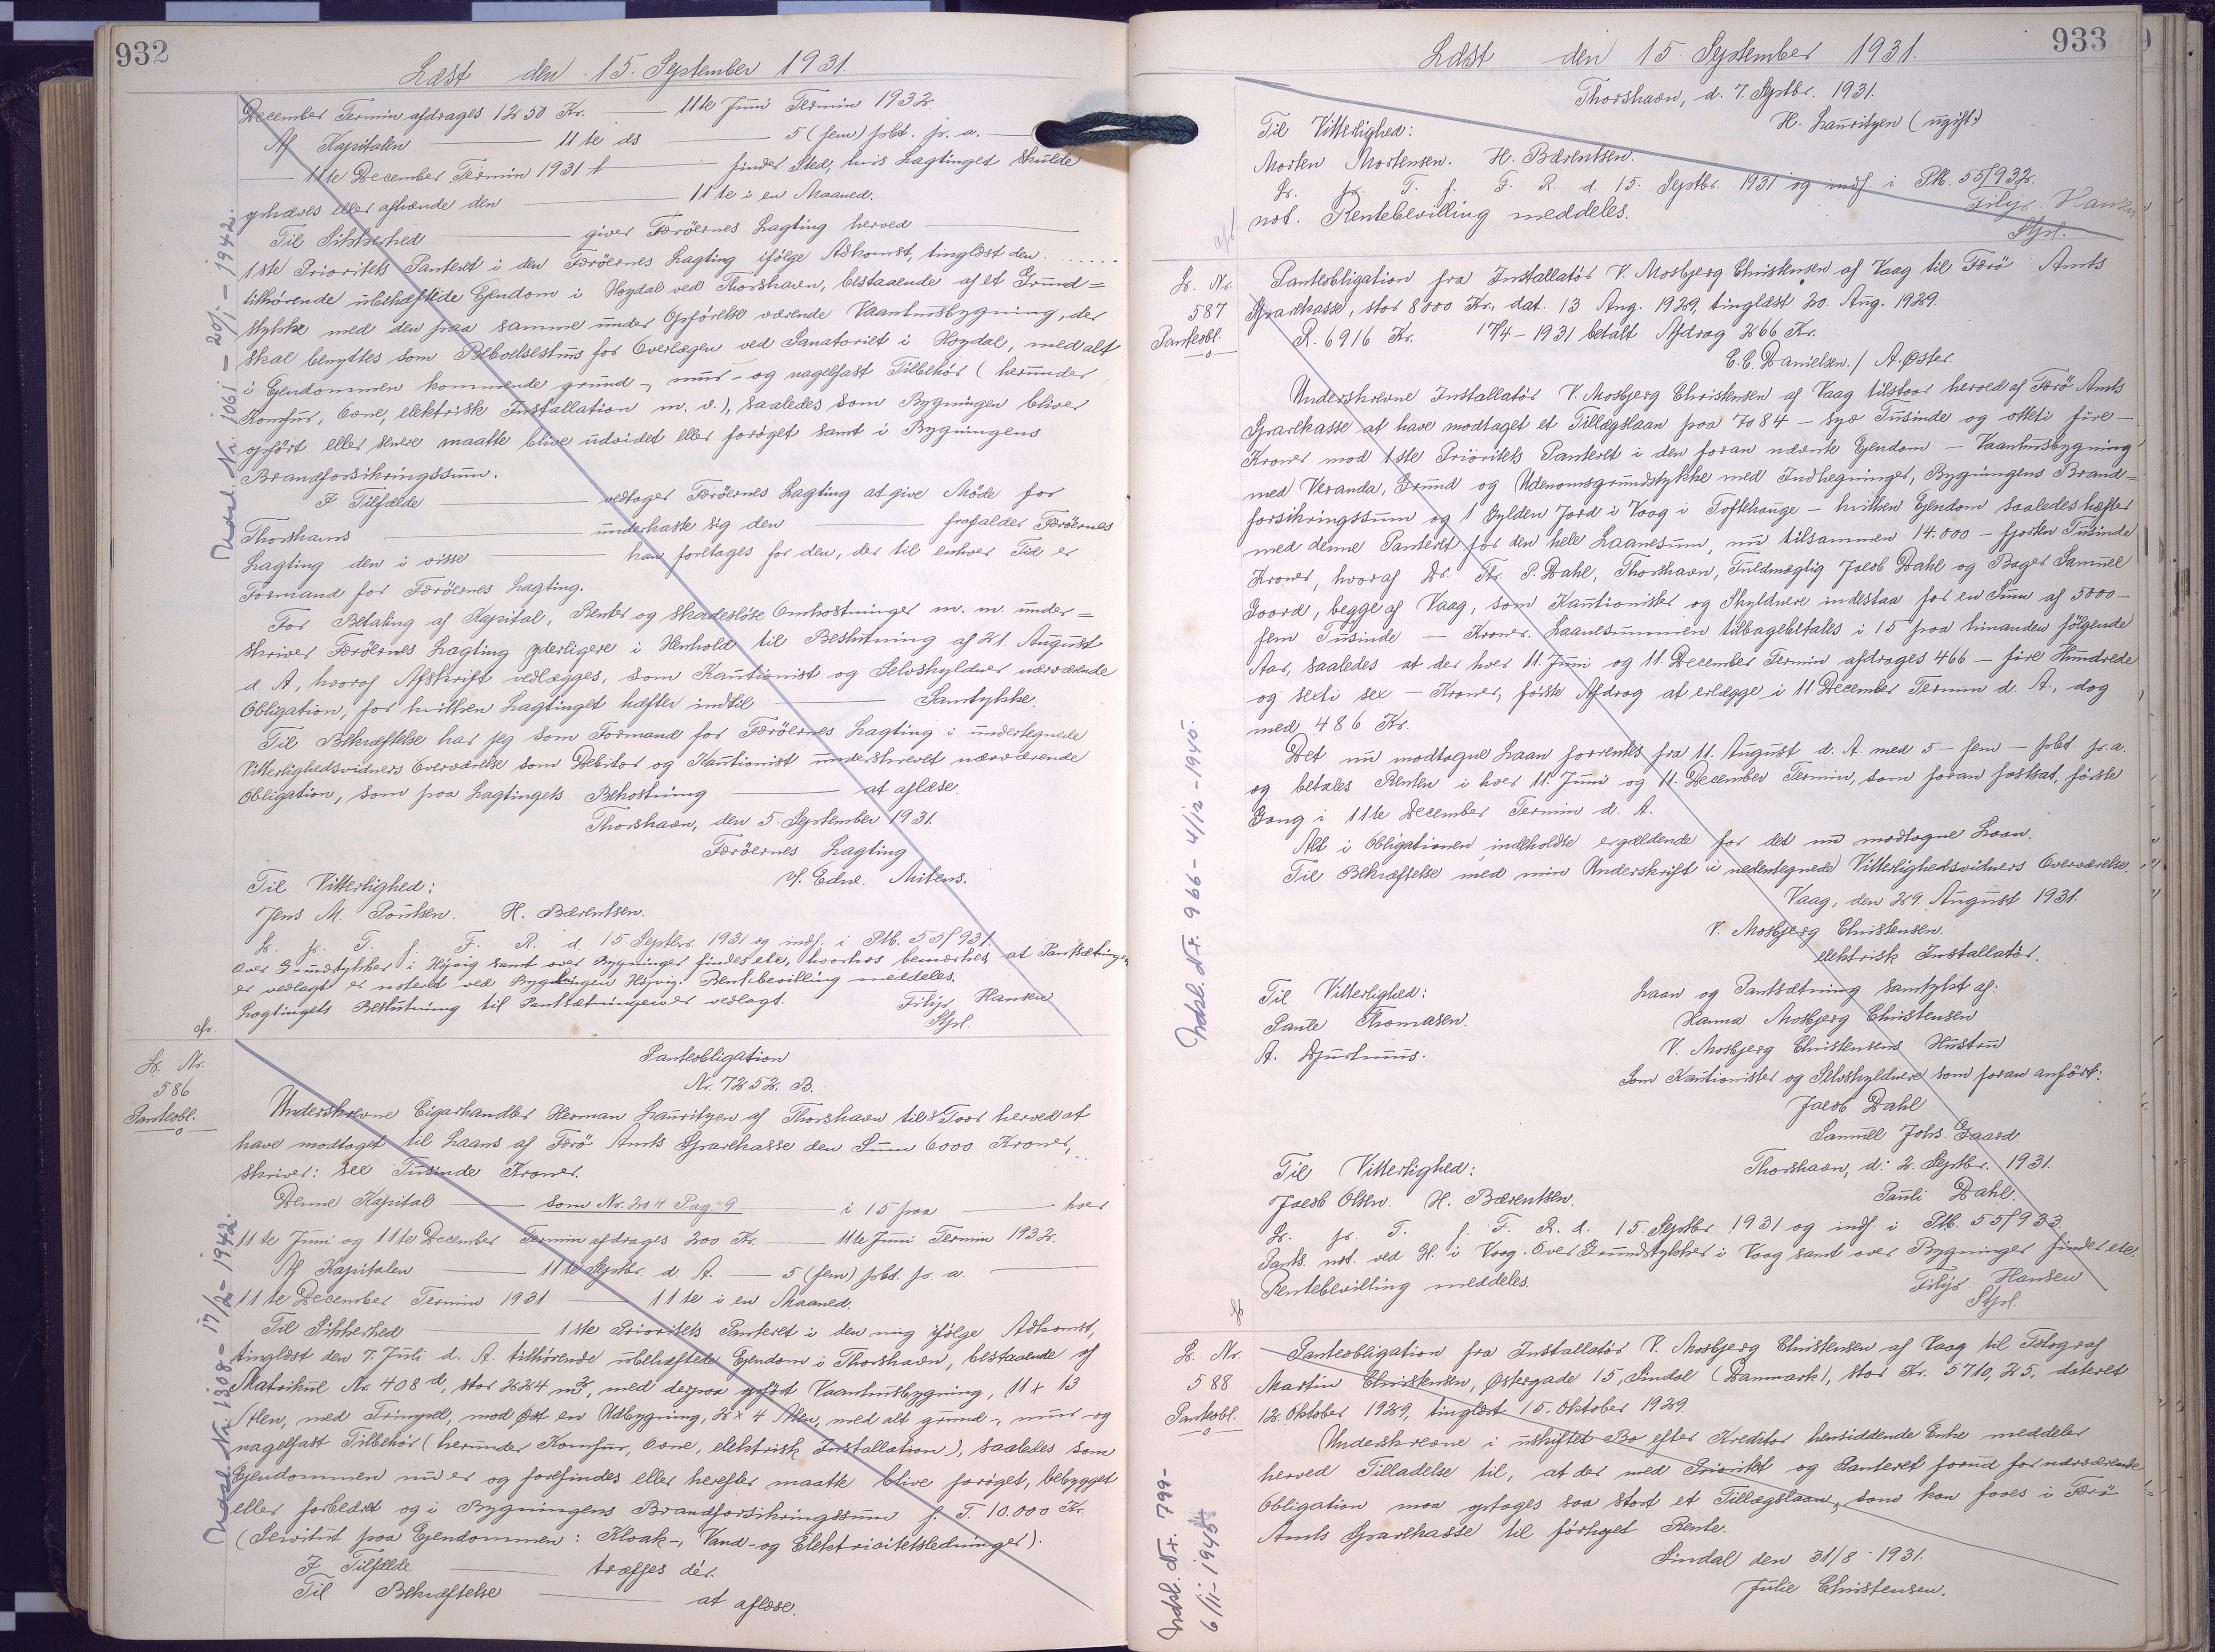 932
Læst den 15. September 1931.
December Termin afdrages 1250 Kr. — 11te Juni Termin 1932.
Af Kapitalen — 11te ds — 5 (fem) pbt. pr. a. —
— 11te December Termin 1931 — finder Sted, hvis Lagtinget skulde
ophæves eller afhænde den — 11te i en Maaned.
Til Sikkerhed — giver Færöernes Lagting herved —
1ste Prioritets Panteret i den Færöernes Lagting ifölge Adkomst, tinglæst den . . . . . .
tilhörende übehæftede Ejendom i Hoydal ved Thorshavn, bestaaende af et Grund=
stykke med den paa samme under Opförelse værende Vaaningsbygning, der
skal benyttes som Beboelseshus for Overlægen ved Sanatoriet i Hoydal, med alt
i Ejendommen kommende grund-, mur- og nagelfast Tilbehör (herunder
Komfur, Ovne, elektrisk Installation m. v.), saaledes som Bygningen bliver
opfört eller senere maatte blive udvidet eller foröget samt i Bygningens
Brandforsikringssum.
I Tilfælde — vedtager Færöernes Lagting at give Möde for
Thorshavns — underkaste sig den — frafalder Færöernes
Lagting den i visse — kan foretages for den, der til enhver Tid er
Formand for Færöernes Lagting.
For Betaling af Kapital, Renter og skadeslöse Omkostninger m. m. under=
skriver Færöernes Lagting yderligere i Henhold til Beslutning af 21. August
d. A., hvoraf Afskrift vedlægges, som Kautionist og Selvskyldner nærværende
Obligation, for hvilken Lagtinget hæfter indtil — Samtykke.
Til Bekræftelse har jeg som Formand for Færöernes Lagting i undertegnede
Vitterlighedsvidners Overværelse som Debitor og Kautionist underskrevet nærværende
Obligation, som paa Lagtingets Bekostning — at aflæse.
Thorshavn, den 5. September 1931.
Færöernes Lagting
Edw. Mitens.
Til Vitterlighed:
Jens M. Poulsen. H. Bærentsen.
L. p. T. f. F. R. d. 15. Septbr. 1931 og indf. i Ptb. 55/931.
Over Grundstykker i Höjvig samt over Bygninger findes etc., hvorhos bemærkes, at Pantsætningen
er vedlagt er noteret ved Bygningen Höjvig. Rentebevilling meddeles.
Lagtingets Beslutning til Pantsætningen er vedlagt. Filip Hansen
Stpl.
L. Nr.
586
Panteobl.
Panteobligation
Nr. 7252. B.
Underskrevne Cigarhandler Herman Lauritzen af Thorshavn tilstaar herved at
have modtaget til Laans af Færö Amts Sparekasse den Sum 6000 Kroner,
skriver: sex Tusinde Kroner.
Denne Kapital — som Nr. 204 Pag. 9 — i 15 paa — hver
11te Juni og 11te December Termin afdrages 200 Kr. — 11te Juni Termin 1932.
Af Kapitalen — 11te Septbr. d. A. — 5 (fem) pbt. pr. a. —
11te December Termin 1931 — 11te i en Maaned.
Til Sikkerhed — 1ste Prioritets Panteret i den mig ifölge Adkomst,
tinglæst den 7. Juli d. A. tilhörende übehæftede Ejendom i Thorshavn, bestaaende af
Matrikul Nr. 408 d, stor 224 m², med derpaa opfört Vaaningsbygning, 11 x 13
Alen, med Frimpel, mod Øst en Udbygning, 2 x 4 Alen, med alt grund-, mur- og
nagelfast Tilbehör (herunder Komfur, Ovne, elektrisk Installation), saaledes som
Ejendommen nu er og forefindes eller herefter maatte blive foröget, bebygget
eller forbedret og i Bygningens Brandforsikringssum f. T. 10.000 Kr.
(Servitut paa Ejendommen: Kloak-, Vand- og Elektricitetsledninger).
I Tilfælde — træffes dér.
Til Bekræftelse — at aflæse.
Udsl. Nr. 1061 – 20/1 – 1942.
Udsl. Nr. 1308 – 17/2 – 1942.
933
Læst den 15. September 1931.
Thorshavn, d. 7. Septbr. 1931.
H. Lauritzen (ugift)
Til Vitterlighed:
Morten Mortensen. H. Bærentsen.
L. p. T. f. F. R. d. 15. Septbr. 1931 og indf. i Ptb. 55/932.
not. Rentebevilling meddeles. Filip Hansen
Stpl.
L. Nr.
587
Panteobl.
Panteobligation fra Installatör V. Mosbjerg Christensen af Vaag til Færö Amts
Sparekasse, stor 8000 Kr., dat. 13. Aug. 1929, tinglæst 20. Aug. 1929.
R. 6916 Kr. 17/4 – 1931 betalt Afdrag 266 Kr.
E. C. Danielsen. / A. Øster.
Underskrevne Installatör V. Mosbjerg Christensen af Vaag tilstaar herved af Færö Amts
Sparekasse at have modtaget et Tillægslaan paa 7084 – syv Tusinde og otteti fire –
Kroner mod 1ste Prioritets Panteret i den foran nævnte Ejendom – Vaaningsbygning
med Veranda, Grund og Udenomsgrundstykke med Indhegninger, Bygningens Brand=
forsikringssum og 1 Gylden Jord i Vaag i Toftehauge – hvilken Ejendom saaledes hæfter
med denne Panteret for den hele Laanesum, nu tilsammen 14.000 – fjorten Tusinde
Kroner, hvoraf Dr. P. Dahl, Thorshavn, Fuldmægtig Jacob Dahl og Bager Samuel
Gaard, begge af Vaag, som Kautionister og Skyldnere indestaa for en Sum af 5000 –
fem Tusinde – Kroner. Laanesummen tilbagebetales i 15 paa hinanden fölgende
Aar, saaledes at der hver 11. Juni og 11. December Termin afdrages 466 – fire Hundrede
og sexti sex – Kroner, förste Afdrag at erlægge i 11. December Termin d. A., dog
med 486 Kr.
Det nu modtagne Laan forrentes fra 11. August d. A. med 5 – fem – pbt. pr. a.
og betales Renten i hver 11. Juni og 11. December Termin, som foran fastsat, förste
Gang i 11te December Termin d. A.
Alt i Obligationen indeholdte er gældende for det nu modtagne Laan.
Til Bekræftelse med min Underskrift i nedentegnede Vitterlighedsvidners Overværelse.
Vaag, den 29. August 1931.
V. Mosbjerg Christensen.
elektrisk Installatör.
Til Vitterlighed:
Paule Thomasen.
A. Djurhuus.
Laan og Pantsætning samtykt af:
Hanna Mosbjerg Christensen
V. Mosbjerg Christensens Hustru
Som Kautionister og Selvskyldnere som foran anfört:
Jacob Dahl
Samuel Johs. Gaard.
Til Vitterlighed:
Thorshavn, d. 2. Septbr. 1931.
Jacob Olsen. H. Bærentsen.
Pauli Dahl.
L. p. T. f. F. R. d. 15. Septbr. 1931 og indf. i Ptb. 55/933.
Pants. not. ved H. i Vaag. Over Grundstykker i Vaag samt over Bygninger findes etc.
Rentebevilling meddeles. Filip Hansen
Stpl.
L. Nr.
588
Panteobl.
Panteobligation fra Installatör V. Mosbjerg Christensen af Vaag til Fotograf
Martin Christensen, Østergade 15, Sindal (Danmark), stor Kr. 5710,25, dateret
12. Oktober 1929, tinglæst 15. Oktober 1929.
Underskrevne i uskiftet Bo efter Kreditor hensiddende Enke meddeler
herved Tilladelse til, at der med Prioritet og Panteret forud for nærværende
Obligation maa optages saa stort et Tillægslaan, som kan faaes i Færö
Amts Sparekasse til förhöjet Rente.
Sindal den 31/8 1931.
Julie Christensen.
Udsl. Nr. 966 – 4/12 – 1945.
Udsl. Nr. 799 –